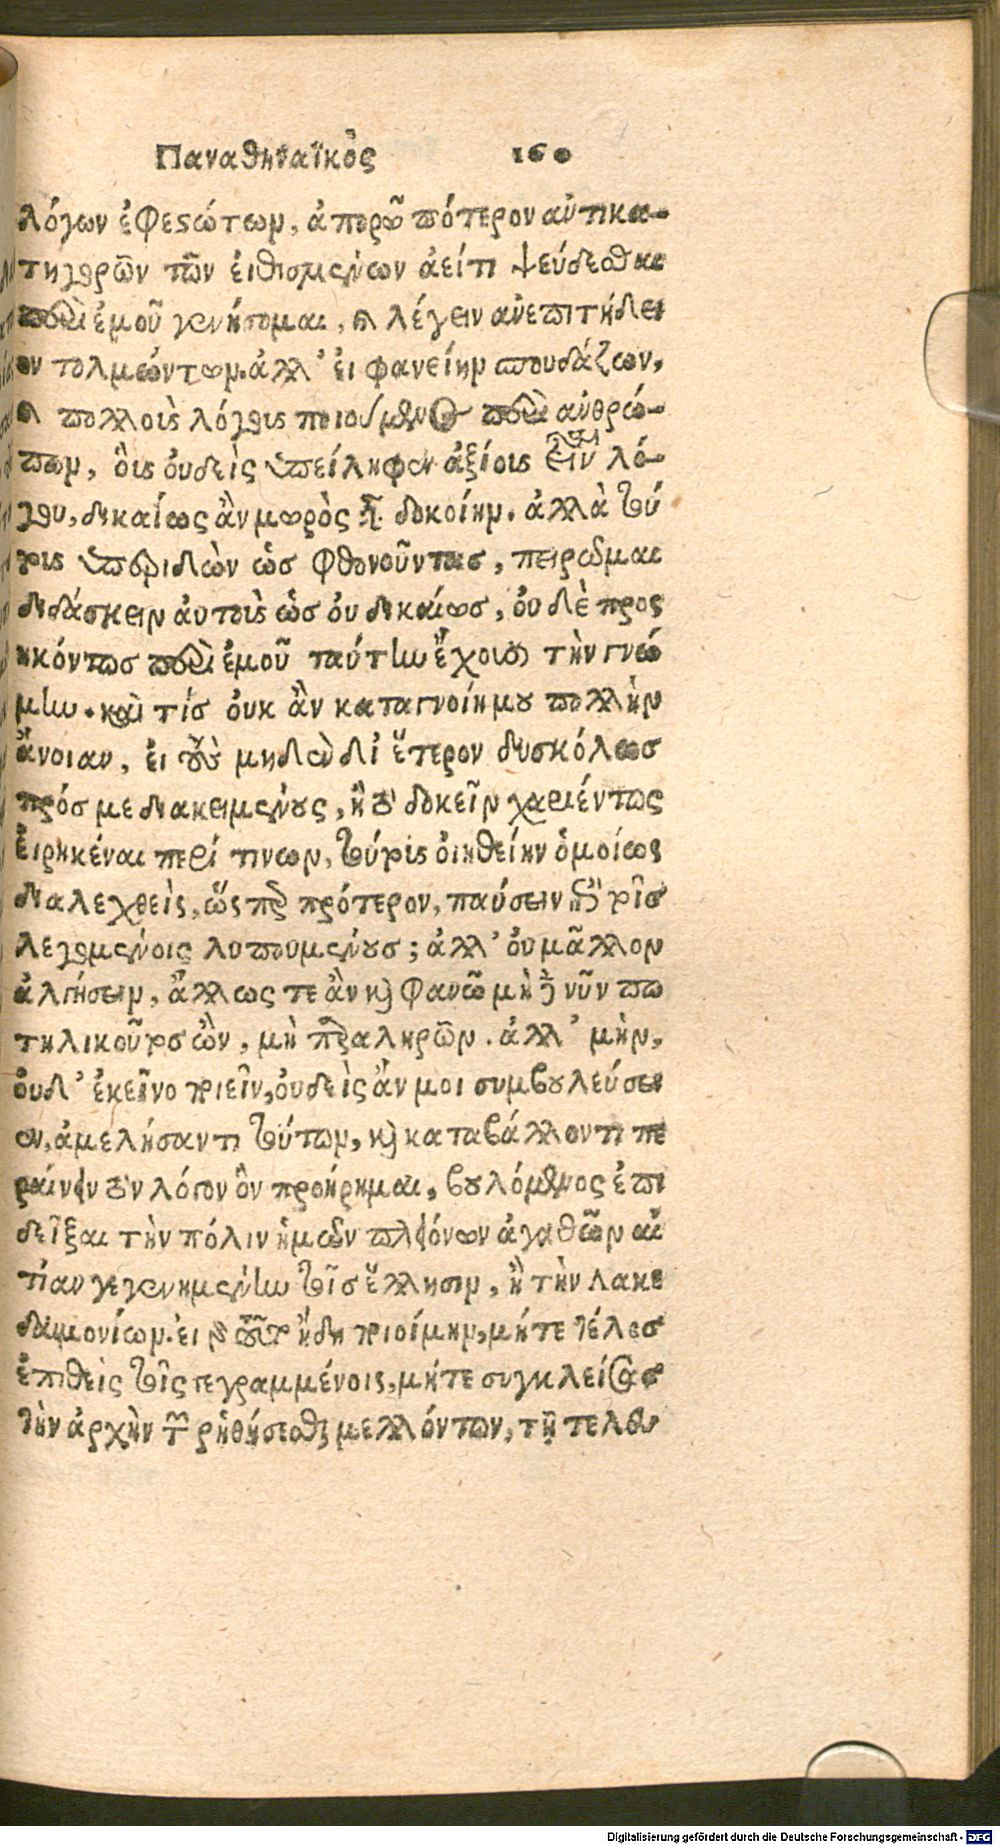 Παναθηναϊκὸς 160
λόγων ἐφεστώτων, ἀπορῶ πότερον αὐτικα-
τηγορῶν τῶν εἰθισμένων ἀεί τι ψεύδεσθαι
περὶ ἐμοῦ γενήσομαι, καὶ λέγειν ἀνεπιτήδει
ον τολμώντων. ἀλλ' εἰ φανείην σπουδάζων,
καὶ πολλοὺς λόγους ποιούμενος περὶ ἀνθρώ-
πων, οὓς οὐδεὶς ὑπείληφεν ἀξίους εἶναι λό-
γου, δικαίως ἂν μωρὸς εἶναι δοκοίην. ἀλλὰ τού
τους ὑπεριδὼν ὡς φθονοῦντας, πειρῶμαι
διδάσκειν αὐτοὺς ὡς οὐ δικαίως, οὐδὲ προς
ηκόντως περὶ ἐμοῦ ταύτην ἔχουσι τὴν γνώ
μην. καὶ τίς οὐκ ἂν καταγνοίη μου πολλὴν
ἄνοιαν, εἰ τοὺς μηδὲν δι' ἕτερον δυσκόλως
πρός με διακειμένους, ἢ τὸ δοκεῖν χαριέντως
εἰρηκέναι περί τινων, τούτους οἰηθείην ὁμοίως
διαλεχθεὶς, ὥσπερ πρότερον, παύσειν ἐπὶ τοῖς
λεγομένοις λυπουμένους; ἀλλ' οὐ μᾶλλον
ἀλγήσειν, ἄλλως τε ἂν καὶ φανῶ μηδὲ νῦν πω
τηλικοῦτος ὢν, μὴ παραληρῶν. ἀλλ' μὴν,
οὐδ' ἐκεῖνο ποιεῖν, οὐδεὶς ἄν μοι συμβουλεύσει
εν, ἀμελήσαντι τούτων, καὶ καταβάλλοντι πε
ραίνειν τὸν λόγον ὃν προῄρημαι, βουλόμενος ἐπι
δεῖξαι τὴν πόλιν ἡμῶν πλειόνων ἀγαθῶν αἰ
τίαν γεγενημένην τοῖς ἕλλησιν, ἢ τὴν λακε
δαιμονίων. εἰ γὰρ τοῦτο ἤδη ποιοίμην, μήτε τέλος
ἐπιθεὶς τοῖς γεγραμμένοις, μήτε συγκλείσας
τὴν ἀρχὴν τῶν ῥηθήσεσθαι μελλόντων, τῇ τελευ
Digitalisierung gefördert durch die Deutsche Forschungsgemeinschaft - DFG